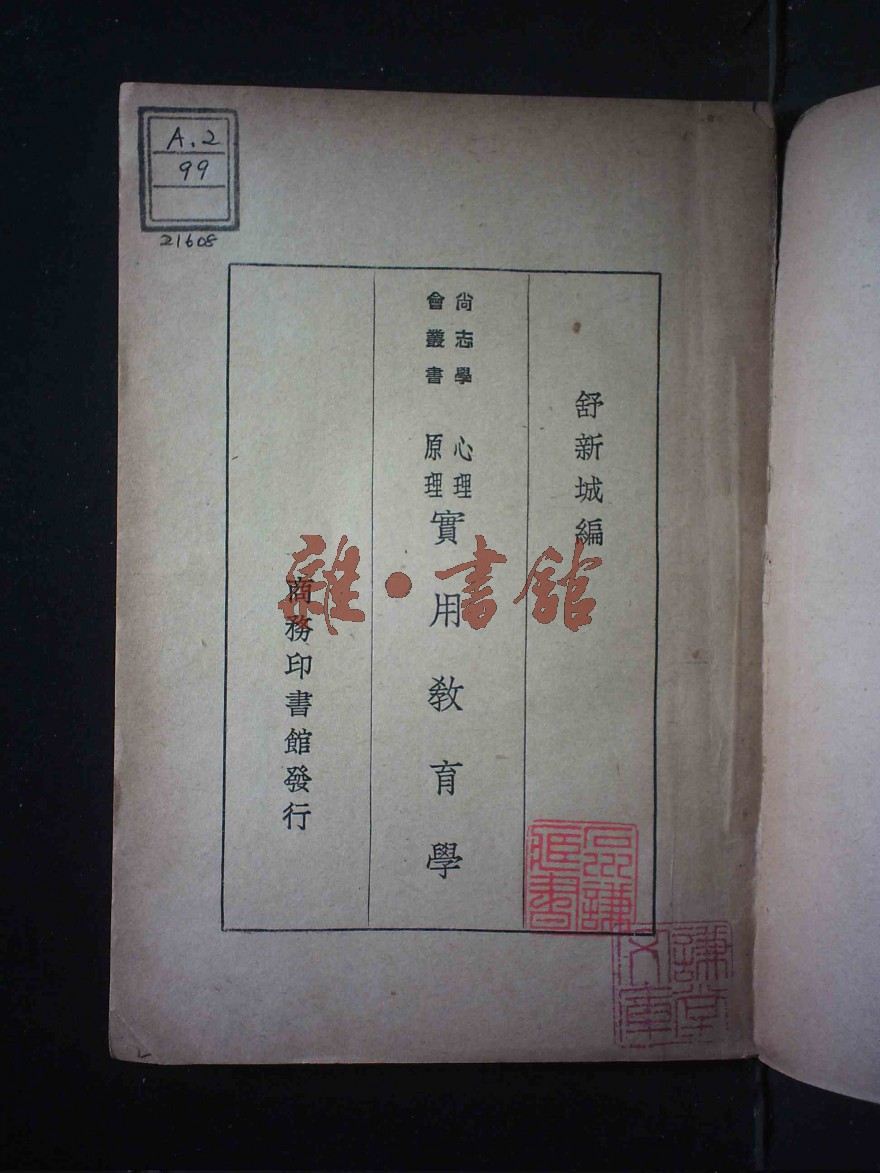 A.2
99
21608
舒新城編
尚志學
會叢書
心理
原理
實用教育學
商務印書館發行
雜·書館
謙堂
文庫